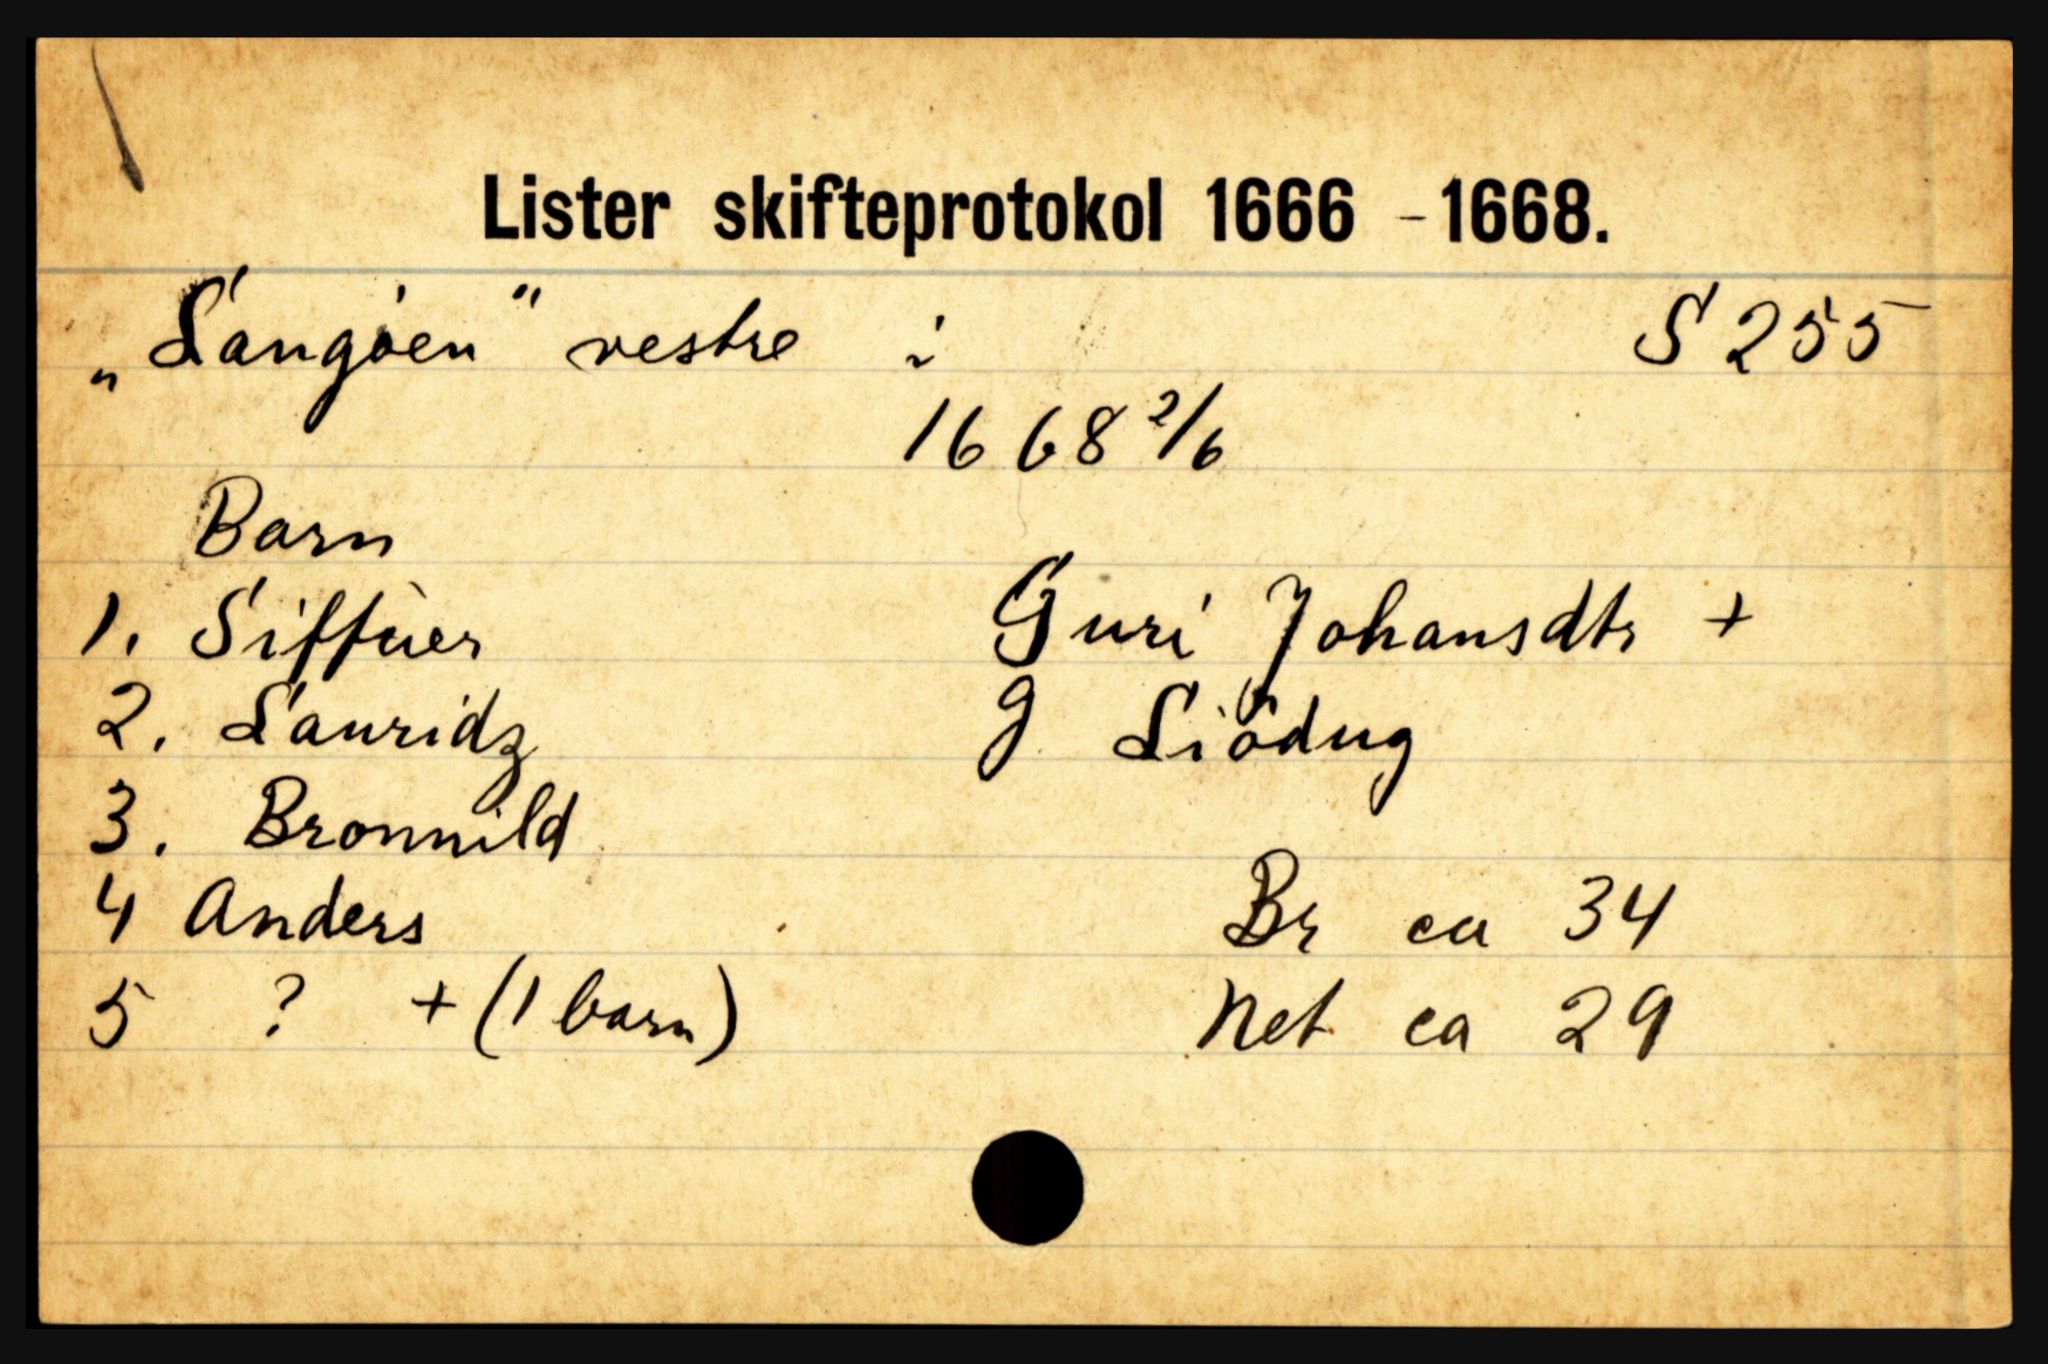 Lister skifteprotokol 1666 - 1668.
„Langöen" vestre i S 255
1668 2/6
Barn
1. Siffuer Guri Johansdtr +
2. Lauridz g Liödug
3. Bronnild
4 Anders Br ca 34
5 ? + (1 barn) Net ca 29